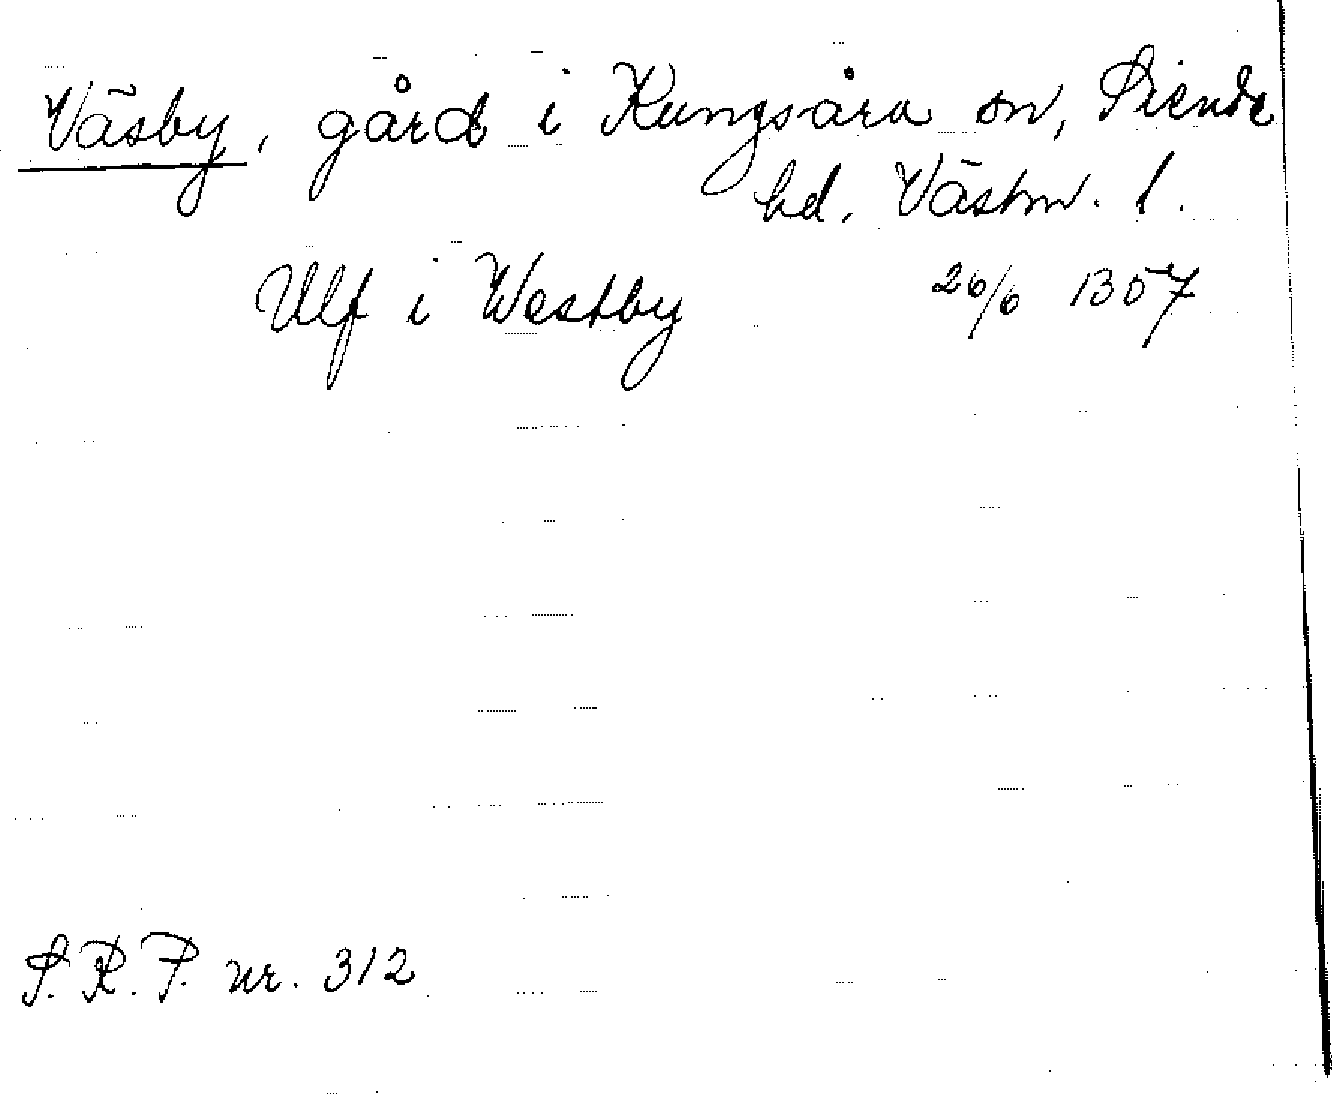 Väsby, gård i Kungsåra sn, Siende
hd. Västm. l.
Ulf i Westby 26/6 1357
S.R.P. nr. 312